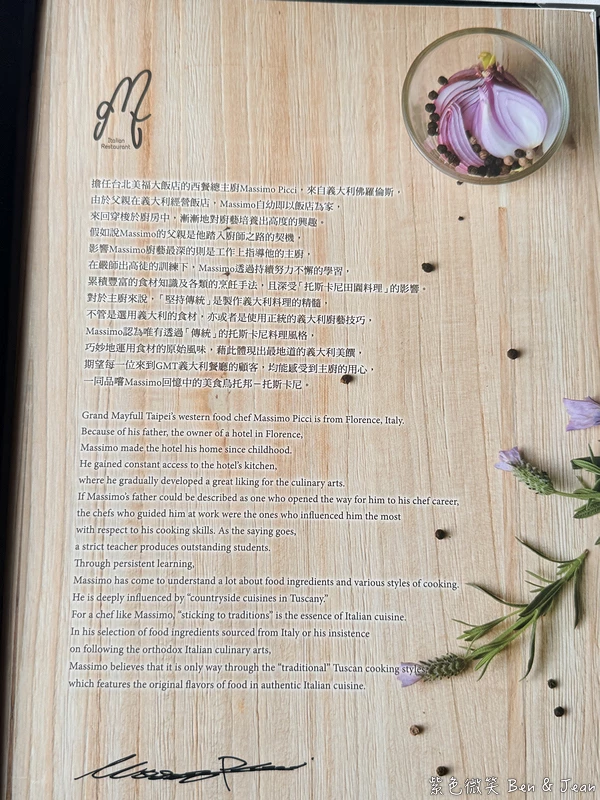 Italian
Restaurant
擔任台北美福大飯店的西餐總主廚Massimo Picci，來自義大利佛羅倫斯，
由於父親在義大利經營飯店，Massimo自幼即以飯店為家，
來回穿梭於廚房中，漸漸地對廚藝培養出高度的興趣。
假如說Massimo的父親是他踏入廚師之路的契機，
影響Massimo廚藝最深的則是工作上指導他的主廚，
在嚴師出高徒的訓練下，Massimo透過持續努力不懈的學習，
累積豐富的食材知識及各類的烹飪手法，且深受「托斯卡尼田園料理」的影響。
對於主廚來說，「堅持傳統」是製作義大利料理的精髓，
不管是選用義大利的食材，亦或者是使用正統的義大利廚藝技巧，
Massimo認為唯有透過「傳統」的托斯卡尼料理風格，
巧妙地運用食材的原始風味，藉此體現出最地道的義大利美饌，
期望每一位來到GMT義大利餐廳的顧客，均能感受到主廚的用心，
一同品嚐Massimo回憶中的美食烏托邦－托斯卡尼。
Grand Mayfull Taipei's western food chef Massimo Picci is from Florence, Italy.
Because of his father, the owner of a hotel in Florence,
Massimo made the hotel his home since childhood.
He gained constant access to the hotel's kitchen,
where he gradually developed a great liking for the culinary arts.
If Massimo's father could be described as one who opened the way for him to his chef career,
the chefs who guided him at work were the ones who influenced him the most
with respect to his cooking skills. As the saying goes,
a strict teacher produces outstanding students.
Through persistent learning,
Massimo has come to understand a lot about food ingredients and various styles of cooking.
He is deeply influenced by "countryside cuisines in Tuscany."
For a chef like Massimo, "sticking to traditions" is the essence of Italian cuisine.
In his selection of food ingredients sourced from Italy or his insistence
on following the orthodox Italian culinary arts,
Massimo believes that it is only way through the "traditional" Tuscan cooking styles
which features the original flavors of food in authentic Italian cuisine.
紫色微笑 Ben & Jean